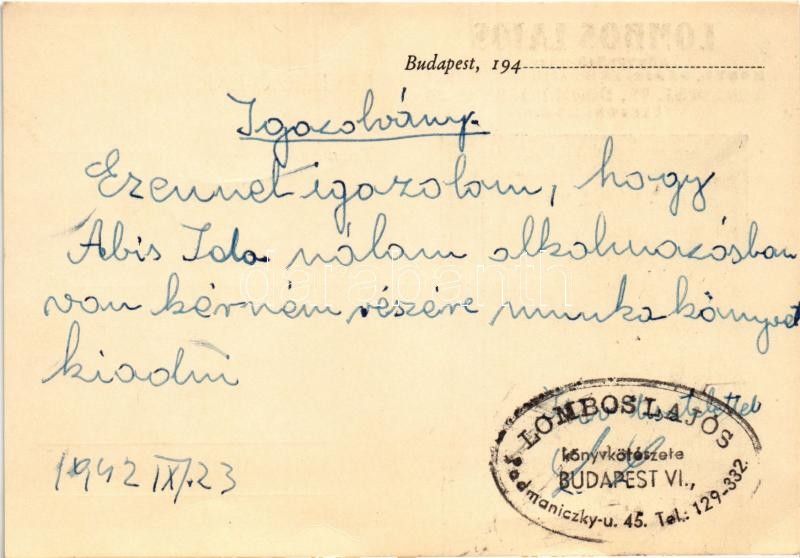 Budapest, 194
Igazolvány.
Ezennel igazolom, hogy
Abis Ida nálam alkalmazásban
van kérném részére munka könyvet
kiadni
tisztelettel
LOMBOS LAJOS
könyvkötészete
BUDAPEST VI.,
Podmaniczky-u. 45. Tel.: 129-332.
1942 IX/23
darabanth